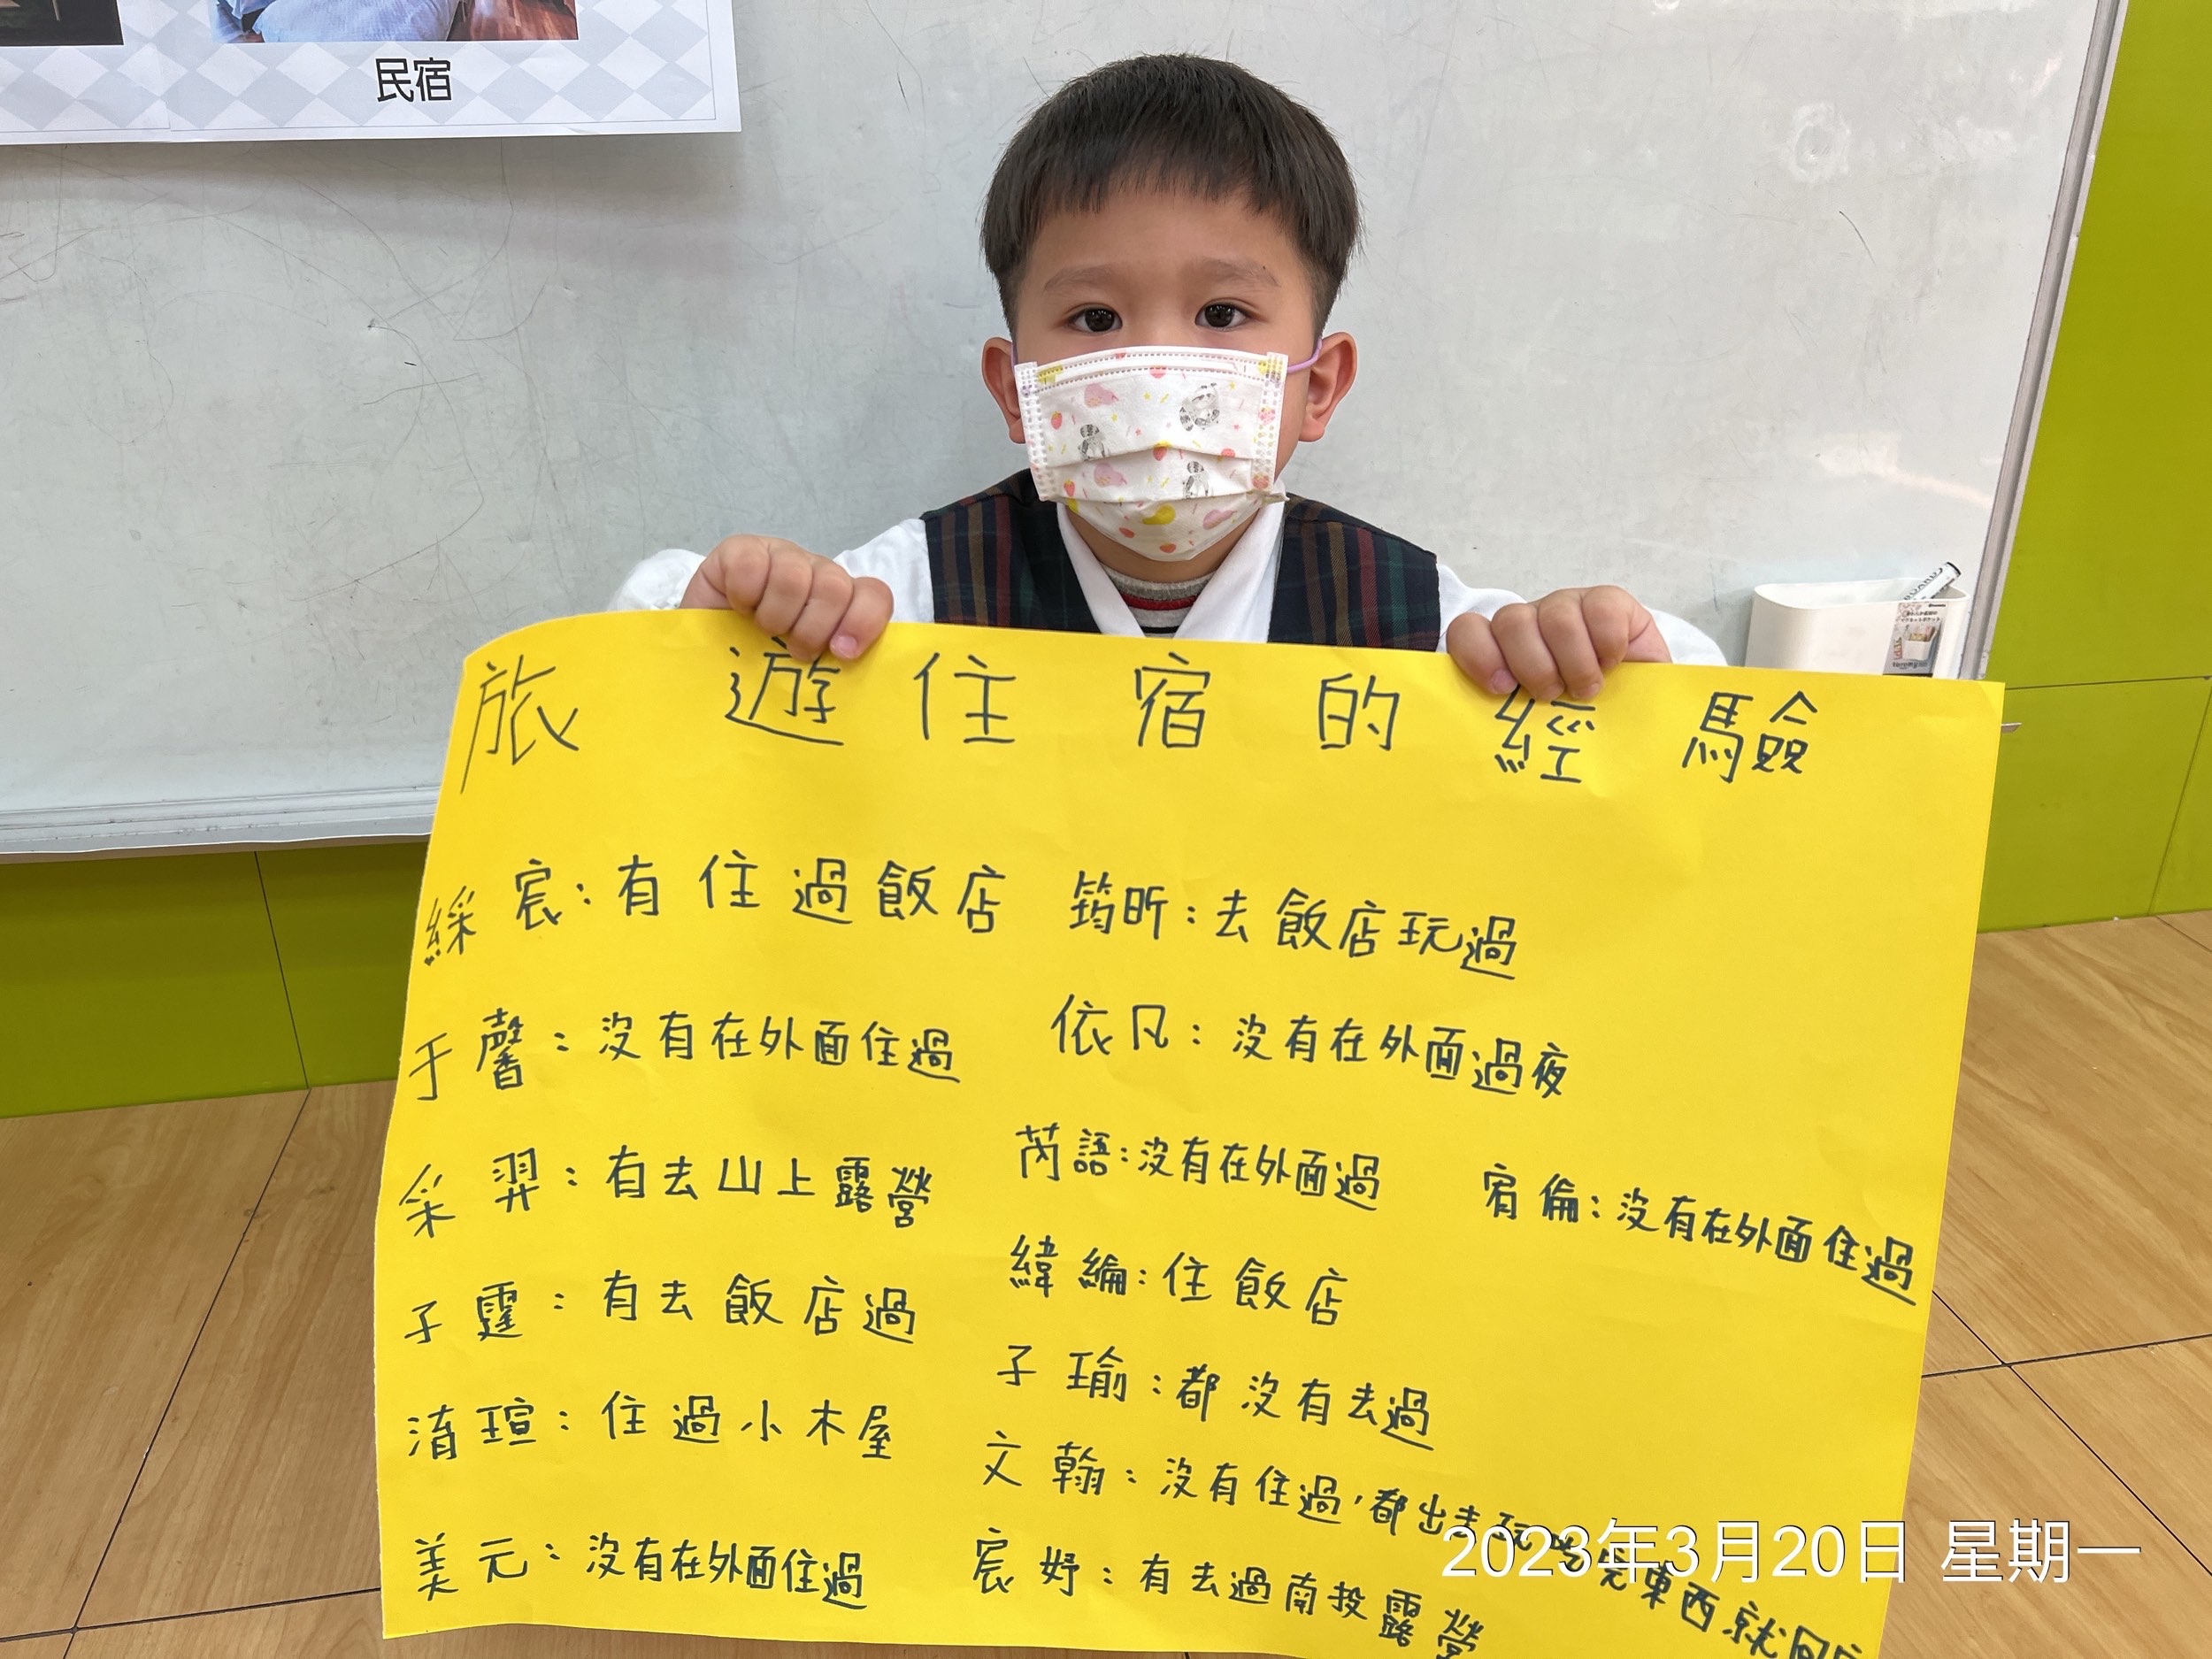 民宿
旅遊住宿的經驗
綵宸：有住過飯店
筠昕：去飯店玩過
于馨：沒有在外面住過
依凡：沒有在外面過夜
采羿：有去山上露營
芮語：沒有在外面過
宥倫：沒有在外面住過
子霆：有去飯店過
緯綸：住飯店
淯瑄：住過小木屋
子瑜：都沒有去過
文翰：沒有住過，都出去玩吃完東西就回
美元：沒有在外面住過
宸妤：有去過南投露營
2023年3月20日 星期一